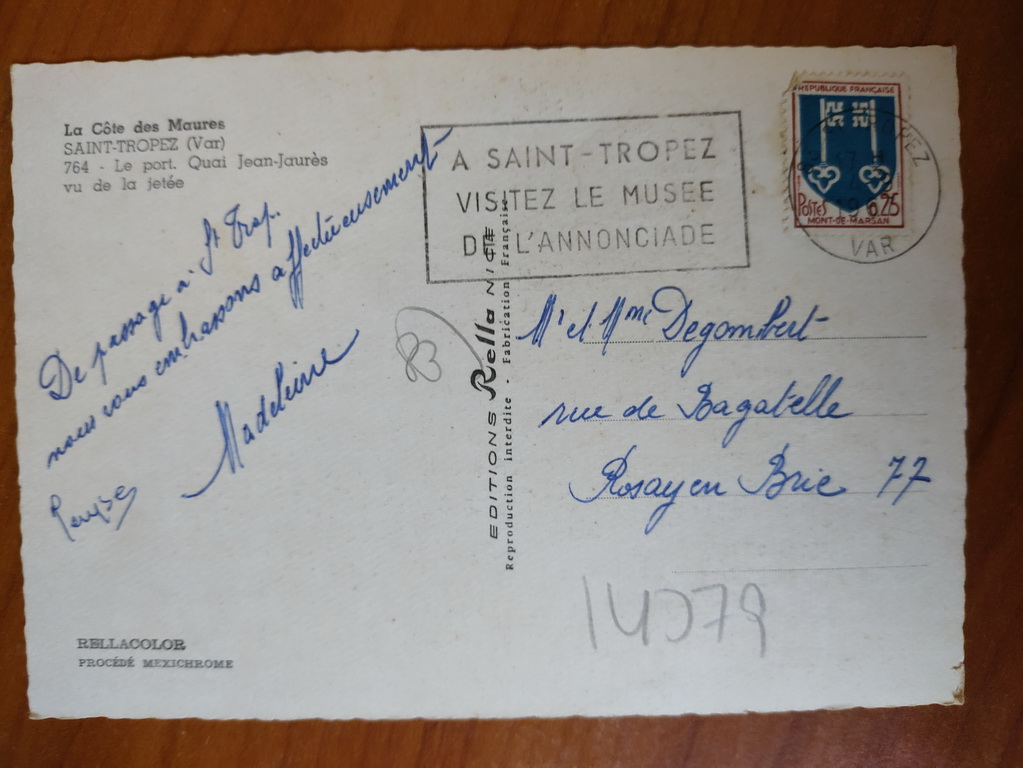 La Côte des Maures
SAINT-TROPEZ (Var)
764 - Le port. Quai Jean-Jaurès
vu de la jetée
De passage à St Trop.
nous vous embrassons affectueusement
Madeleine
A SAINT-TROPEZ
VISITEZ LE MUSEE
DE L'ANNONCIADE
REPUBLIQUE FRANÇAISE
POSTES 0.25
MONT-DE-MARSAN
VAR
EDITIONS Rella NICE
Reproduction interdite - Fabrication Française
Mr et Mme Degombert
rue de Bagatelle
Rosay en Brie 77
14079
RELLACOLOR
PROCÉDÉ MEXICHROME